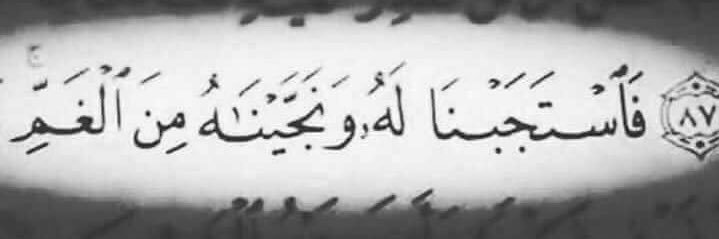 ٨٧ فَٱسْتَجَبْنَا لَهُۥ وَنَجَّيْنَـٰهُ مِنَ ٱلْغَمِّ ۚ